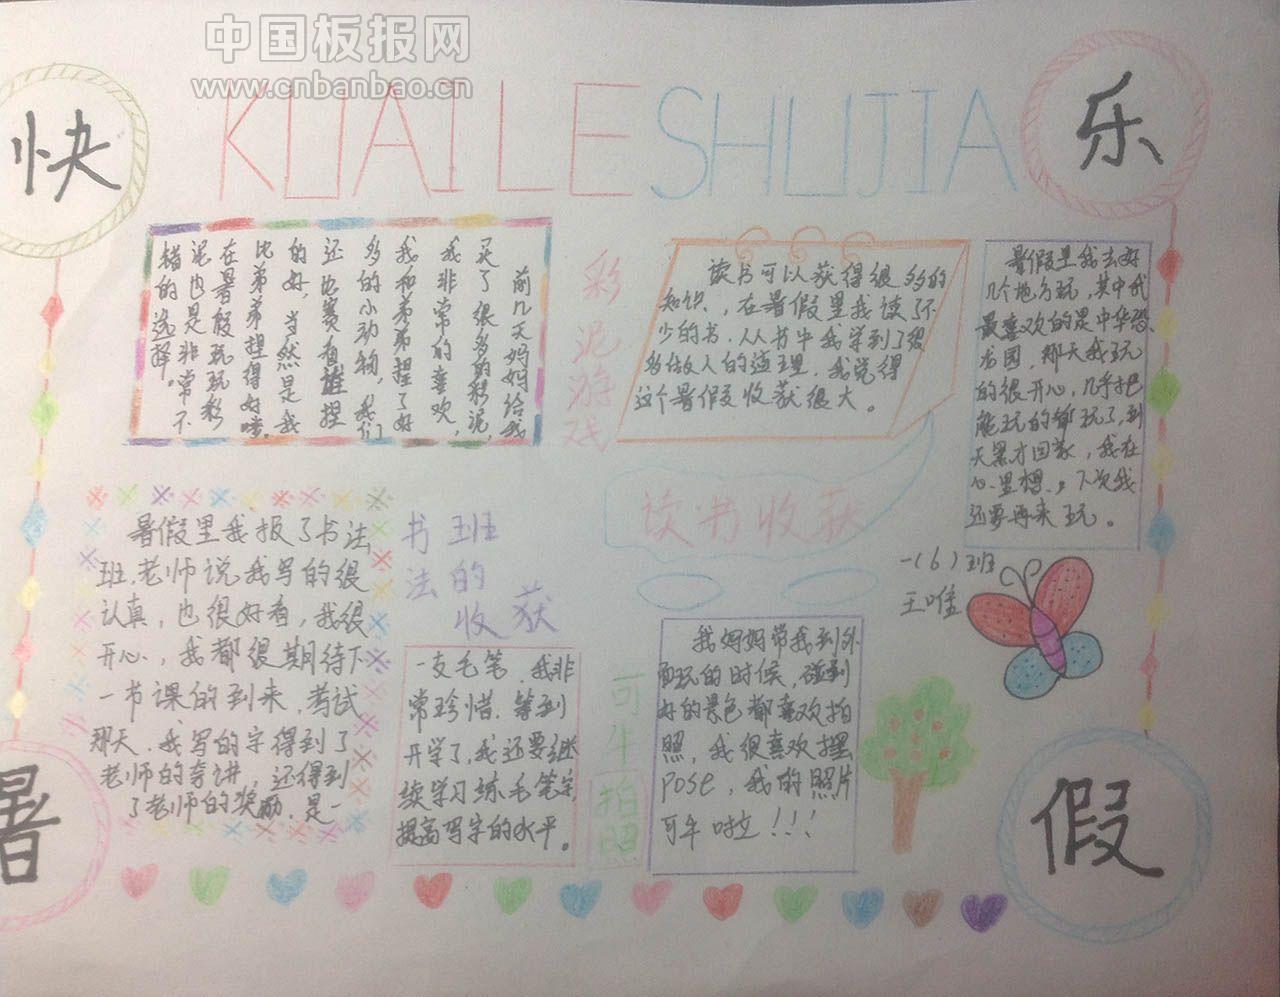 中国板报网
www.cnbanbao.cn
KUAILE SHUJIA
快
乐
暑
假
前几天妈妈给我
买了很多的彩泥，
我非常的喜欢，
我和弟弟捏了好
多的小动物，我们
还比赛看谁捏
的好，当然是我
比弟弟捏得好喽。
在暑假玩玩彩
泥也是非常不
错的选择。
彩泥游戏
读书可以获得很多的
知识，在暑假里我读了不
少的书，从书中我学到了很
多做人的道理，我觉得
这个暑假收获很大。
读书收获
暑假里我去好
几个地方玩，其中我
最喜欢的是中华恐
龙园，那天我玩
的很开心，几乎把
能玩的都玩了，到
天黑才回家，我在
心里想，下次我
还要再来玩。
一（6）班
王唯
暑假里我报了书法
班，老师说我写的很
认真，也很好看，我很
开心，我都很期待下
一书课的到来，考试
那天，我写的字得到了
老师的夸讲，还得到
了老师的奖励，是一
书法
班的
收获
一支毛笔，我非
常珍惜，等到
开学了，我还要继
续学习练毛笔字，
提高写字的水平。
可牛拍照
我妈妈带我到外
面玩的时候，碰到
好的景色都喜欢拍
照，我很喜欢摆
POSE，我的照片
可牛啦！！！